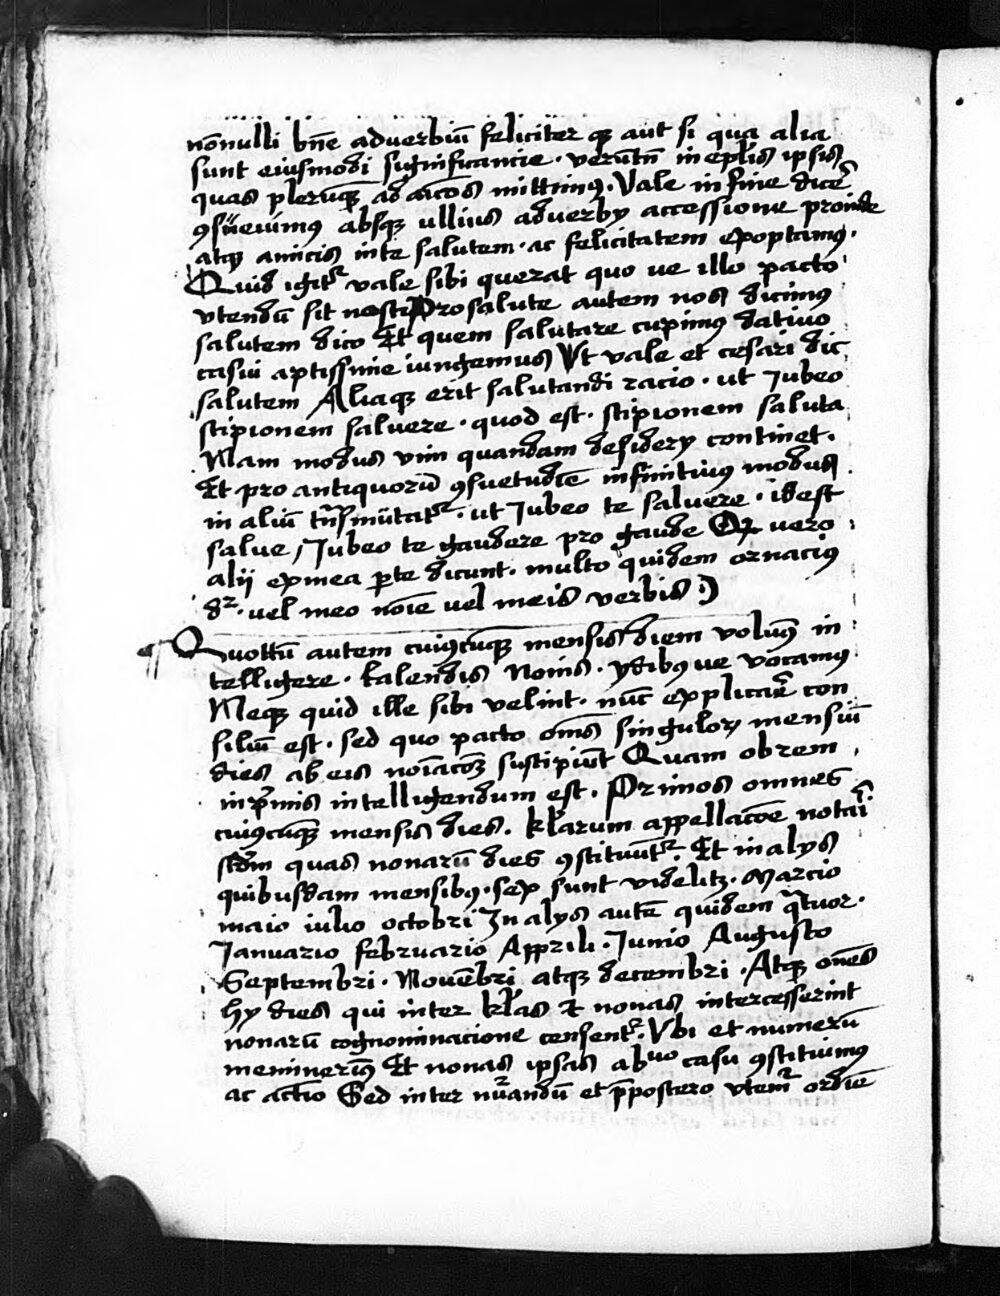 nōnulli bn̄e adverbiū feliciter qꝫ aut si qua alia
sunt eiusmodi significancie · verūtn̄ in eplīs ipsis
quas plerūqꝫ ad amicos mittimꝰ. Vale in fine dicēˀ
ꝯsueuimꝰ absqꝫ ullius adverby accessione proinde
atqꝫ amicis inte salutem · ac felicitatem exoptamꝰ ·
Quid igitˀ vale sibi querat quo ue illo pacto
vtendū sit nosti Pro salute autem nos dicimꝰ
salutem dico Et quem salutare cupimꝰ dativo
casui aptissime iungemus Vt vale et cesari dic
salutem Aliaqꝫ erit salutandi racio · ut Iubeo
stipionem saluere · quod est · stipionem saluta
Nam modus vim quandam desidery continet ·
Et pro antiquorū ꝯsuetudīe infinitiuꝰ modus
in aliū trn̄smūtatˀ · ut Iubeo te saluere · idest
salue / Iubeo te gaudere pro gaude Qꝛ vero
alii ex mea ꝑte dicunt · multo quidem ornacius
dr̄ · uel meo noīe uel meis verbis :)
¶ Quottū autem cuiꝰcūqꝫ mensis diem volumꝰ in
telligere · kalendis Nonis · ydibꝰ ue vocamꝰ
Neqꝫ quid ille sibi velint · nūc explicarē con
siliū est · sed quo pacto om̄s singuloꝝ mensiū
dies ab eis noīacōꝫ sustipiūt Quam obrem
inpˀmis intelligendum est · Primos omnes
cuiꝰcūqꝫ mensis dies · kl̄arum appellacōe notari
scd̄m quas nonarū dies ꝯstituūtˀ. Et in alys
quibusdam mensibꝰ · sex sunt videlitꝫ · Marcio
maio iulio octobri In alys autē quidem qˀtuor ·
Ianuario februario Apprili · Iunio Augusto
Septembri · Nouēbri atqꝫ decembri · Atqꝫ om̄es
hy dies qui inter kl̄as et nonas intercesserint
nonarū cognominacione censentˀ. Vbi et numerū
meminerimꝰ Et nonas ipsas abuo casu ꝯstituimus
ac actō Sed inter nūandū et p̄postero vtemˀ ordīe